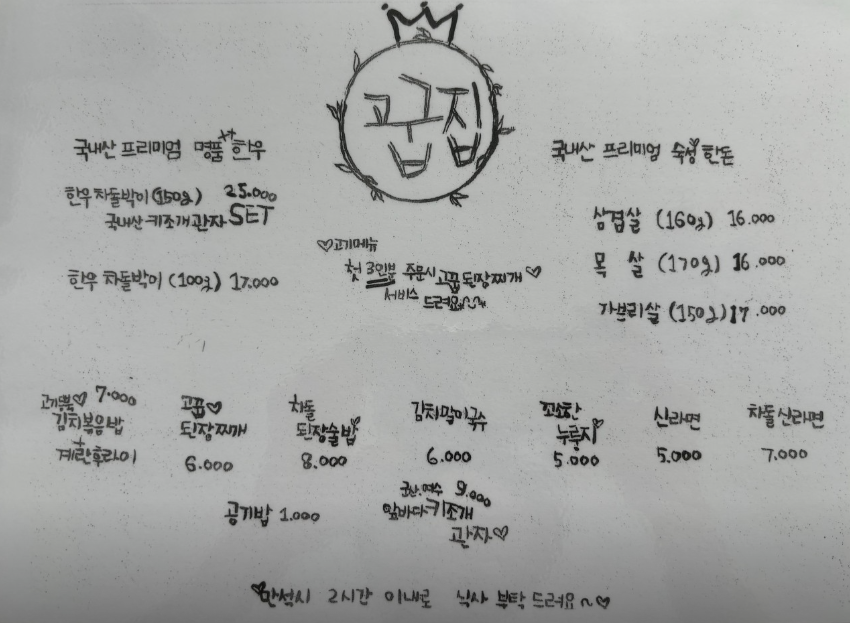 고꿉집
국내산 프리미엄 명품 한우
한우 차돌박이 (150g) 25.000
국내산 키조개 관자 SET
한우 차돌박이 (100g) 17.000
♡고기메뉴
첫 3인분 주문시 고꿉 된장찌개♡
서비스 드려요~
국내산 프리미엄 숙성 한돈
삼겹살 (160g) 16.000
목 살 (170g) 16.000
가브리살 (150g) 17.000
고기듬뿍♡ 7.000
김치볶음밥
+
계란후라이
고꿉♡
된장찌개
6.000
차돌
된장술밥
8.000
김치말이국수
6.000
꼬소한
누룽지
5.000
신라면
5.000
차돌신라면
7.000
공기밥 1.000
군산.여수 9.000
앞바다 키조개
관자♡
♥만석시 2시간 이내로 식사 부탁 드려요~♡